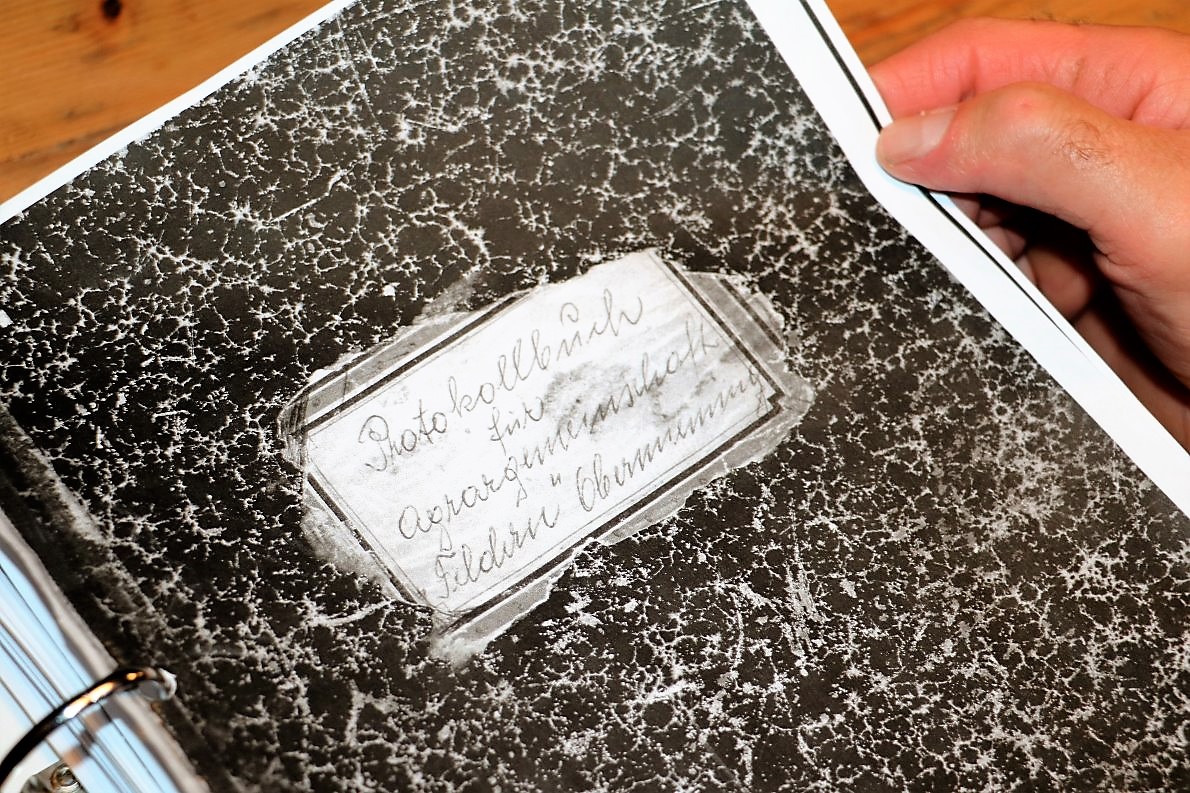 Protokollbuch
für
Agrargemeinschaft
Feldern u Obermieming